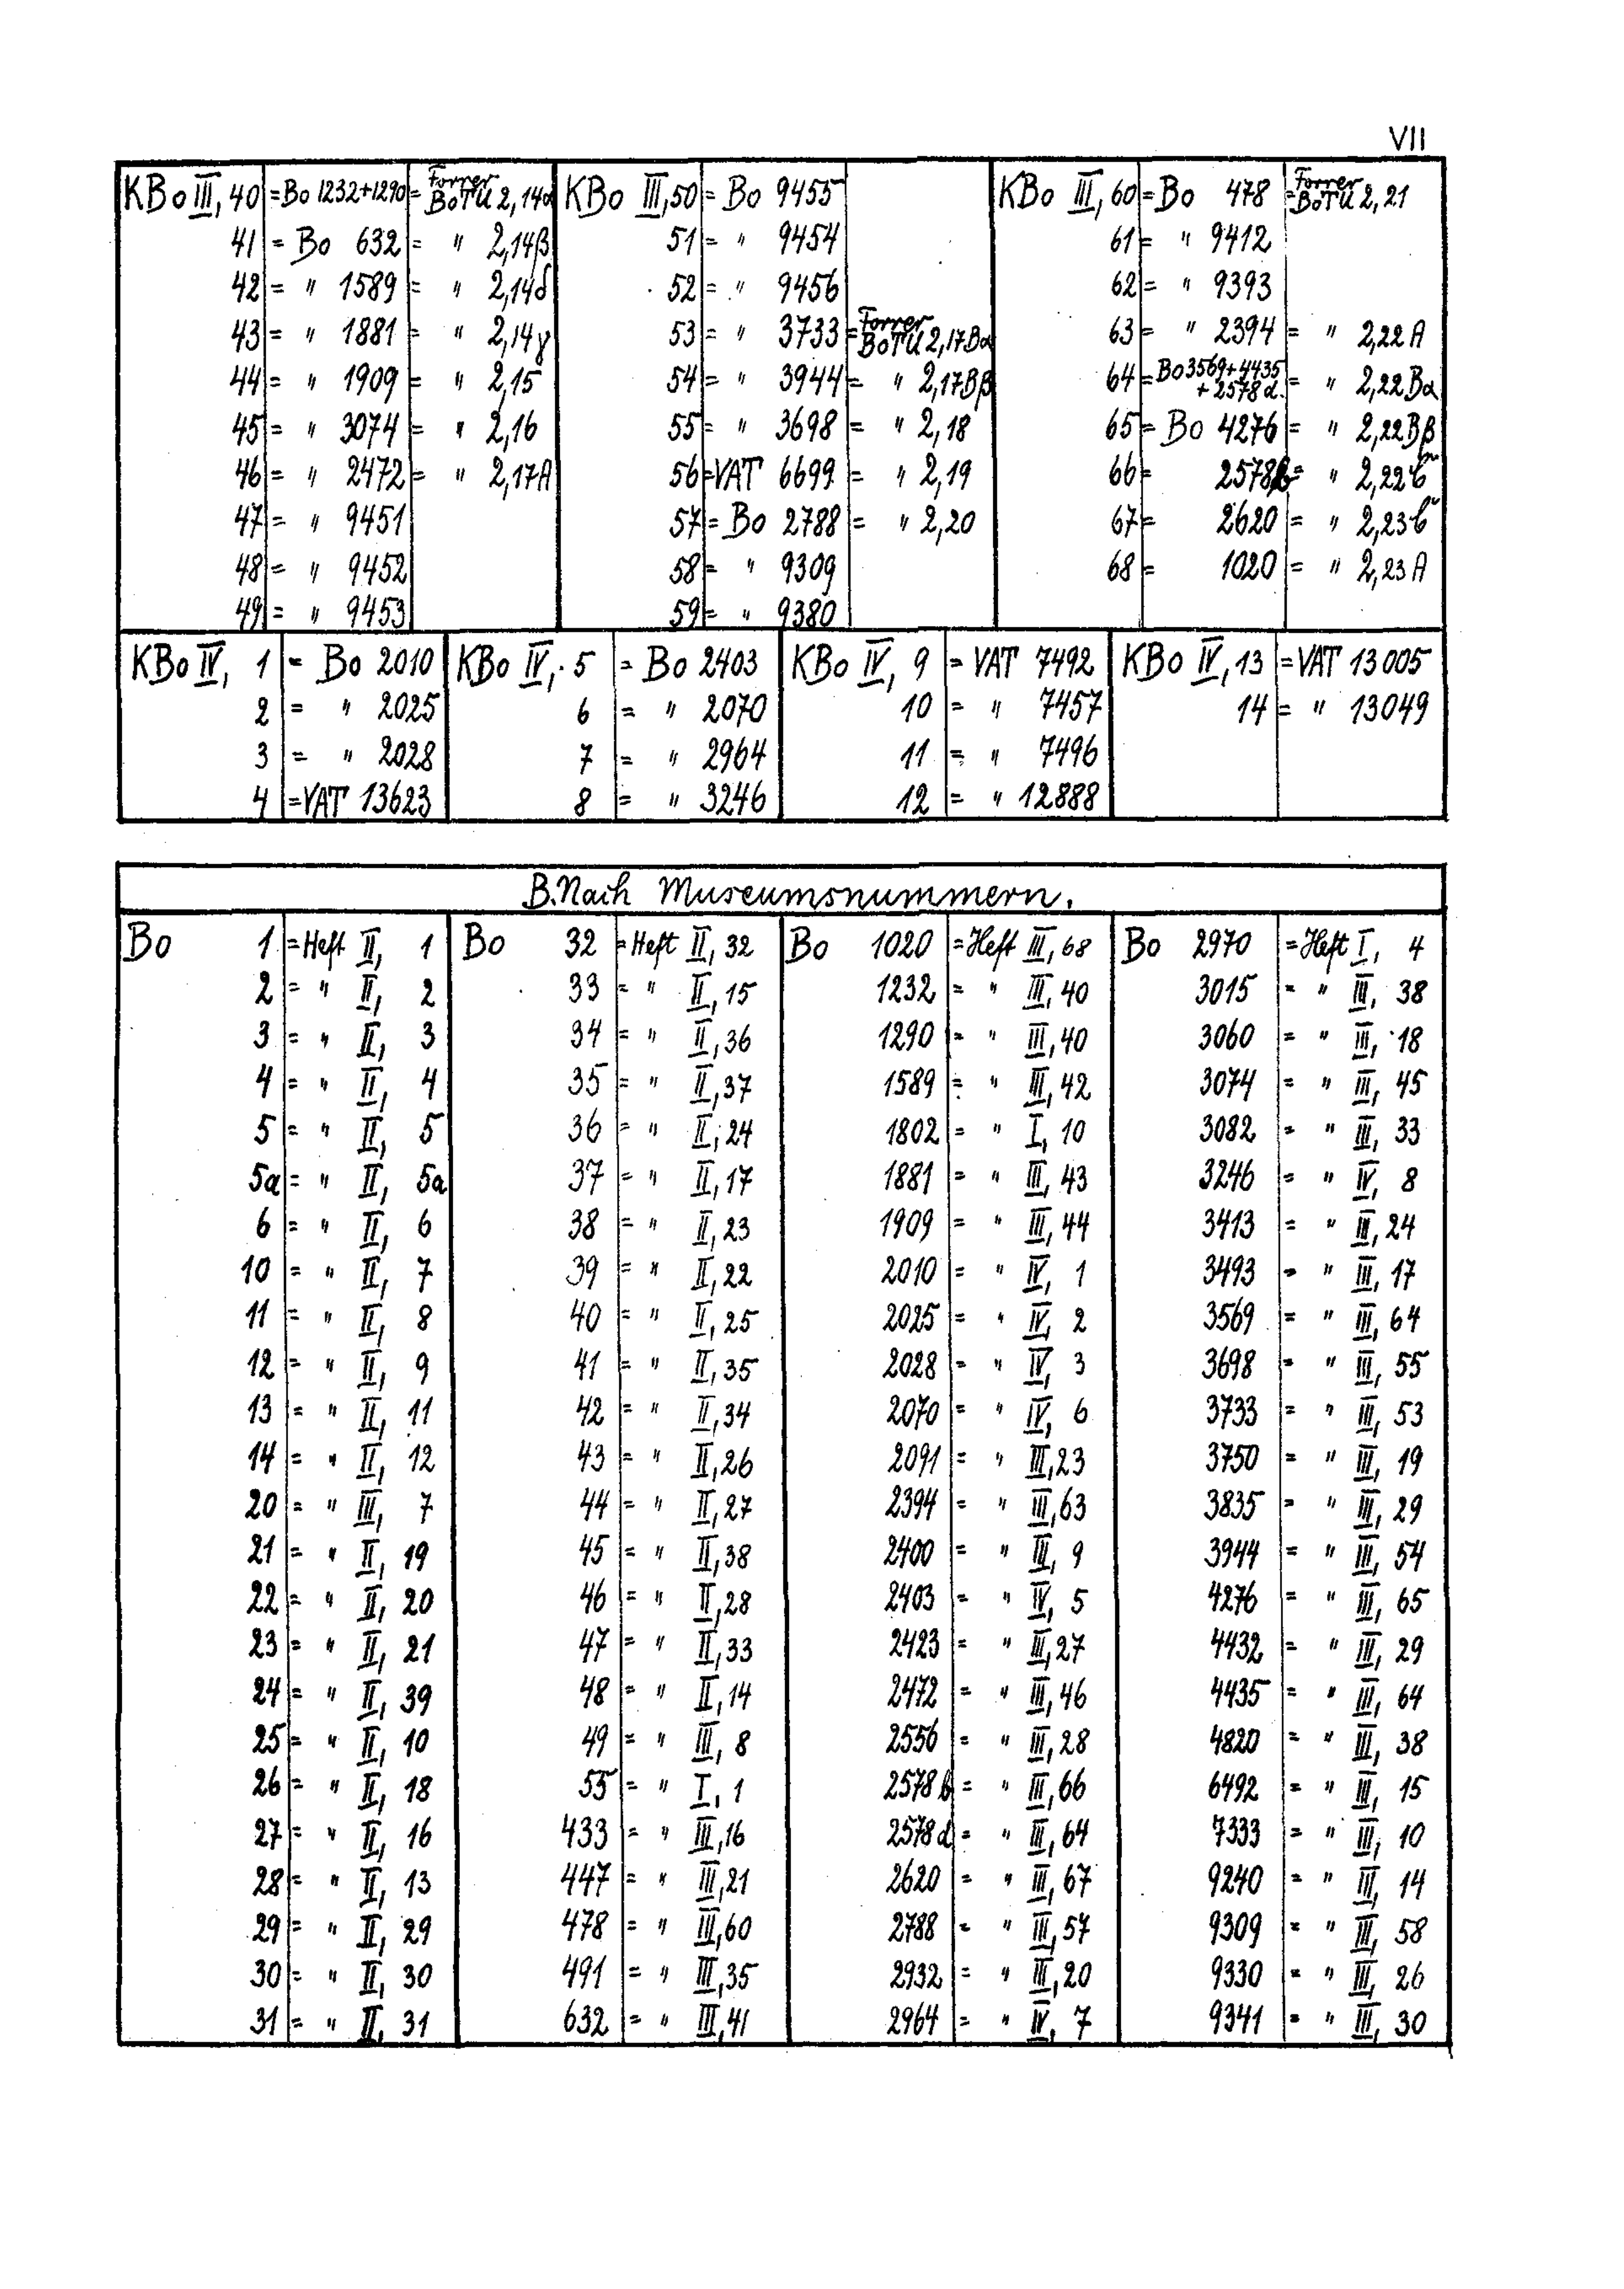 VII
KBo III, 40 = Bo 1232+1290 = Forrer BoTU 2,14α KBo III, 50 = Bo 9455 KBo III, 60 = Bo 478 = Forrer BoTU 2,21
41 = Bo 632 = " 2,14β 51 = " 9454 61 = " 9412
42 = " 1589 = " 2,14δ 52 = " 9456 62 = " 9393
43 = " 1881 = " 2,14γ 53 = " 3733 = Forrer BoTU 2,17Bα 63 = " 2394 = " 2,22A
44 = " 1909 = " 2,15 54 = " 3944 = " 2,17Bβ 64 = Bo 3569+4435 +2578d. = " 2,22Bα
45 = " 3074 = " 2,16 55 = " 3698 = " 2,18 65 = Bo 4276 = " 2,22Bβ
46 = " 2472 = " 2,17A 56 = VAT 6699 = " 2,19 66 = 2578b = " 2,22
47 = " 9451 57 = Bo 2788 = " 2,20 67 = 2620 = " 2,23
48 = " 9452 58 = " 9309 68 = 1020 = " 2,23A
49 = " 9453 59 = " 9380
KBo IV, 1 = Bo 2010 KBo IV, 5 = Bo 2403 KBo IV, 9 = VAT 7492 KBo IV, 13 = VAT 13005
2 = " 2025 6 = " 2070 10 = " 7457 14 = " 13049
3 = " 2028 7 = " 2964 11 = " 7496
4 = VAT 13623 8 = " 3246 12 = " 12888
B. Nach Museumsnummern.
Bo 1 = Heft II, 1 Bo 32 = Heft II, 32 Bo 1020 = Heft III, 68 Bo 2970 = Heft I, 4
2 = " II, 2 33 = " II, 15 1232 = " III, 40 3015 = " III, 38
3 = " II, 3 34 = " II, 36 1290 = " III, 40 3060 = " III, 18
4 = " II, 4 35 = " II, 37 1589 = " III, 42 3074 = " III, 45
5 = " II, 5 36 = " II, 24 1802 = " I, 10 3082 = " III, 33
5a = " II, 5a 37 = " II, 17 1881 = " III, 43 3246 = " IV, 8
6 = " II, 6 38 = " II, 23 1909 = " III, 44 3413 = " III, 24
10 = " II, 7 39 = " II, 22 2010 = " IV, 1 3493 = " III, 17
11 = " II, 8 40 = " II, 25 2025 = " IV, 2 3569 = " III, 64
12 = " II, 9 41 = " II, 35 2028 = " IV, 3 3698 = " III, 55
13 = " II, 11 42 = " II, 34 2070 = " IV, 6 3733 = " III, 53
14 = " II, 12 43 = " II, 26 2091 = " III, 23 3750 = " III, 19
20 = " III, 7 44 = " II, 27 2394 = " III, 63 3835 = " III, 29
21 = " II, 19 45 = " II, 38 2400 = " III, 9 3944 = " III, 54
22 = " II, 20 46 = " II, 28 2403 = " IV, 5 4276 = " III, 65
23 = " II, 21 47 = " II, 33 2423 = " III, 27 4432 = " III, 29
24 = " II, 39 48 = " II, 14 2472 = " III, 46 4435 = " III, 64
25 = " II, 10 49 = " III, 8 2556 = " III, 28 4820 = " III, 38
26 = " II, 18 55 = " I, 1 2578b = " III, 66 6492 = " III, 15
27 = " II, 16 433 = " III, 16 2578d = " III, 64 7333 = " III, 10
28 = " II, 13 447 = " III, 21 2620 = " III, 67 9240 = " III, 14
29 = " II, 29 478 = " III, 60 2788 = " III, 57 9309 = " III, 58
30 = " II, 30 491 = " III, 35 2932 = " III, 20 9330 = " III, 26
31 = " II, 31 632 = " III, 41 2964 = " IV, 7 9341 = " III, 30